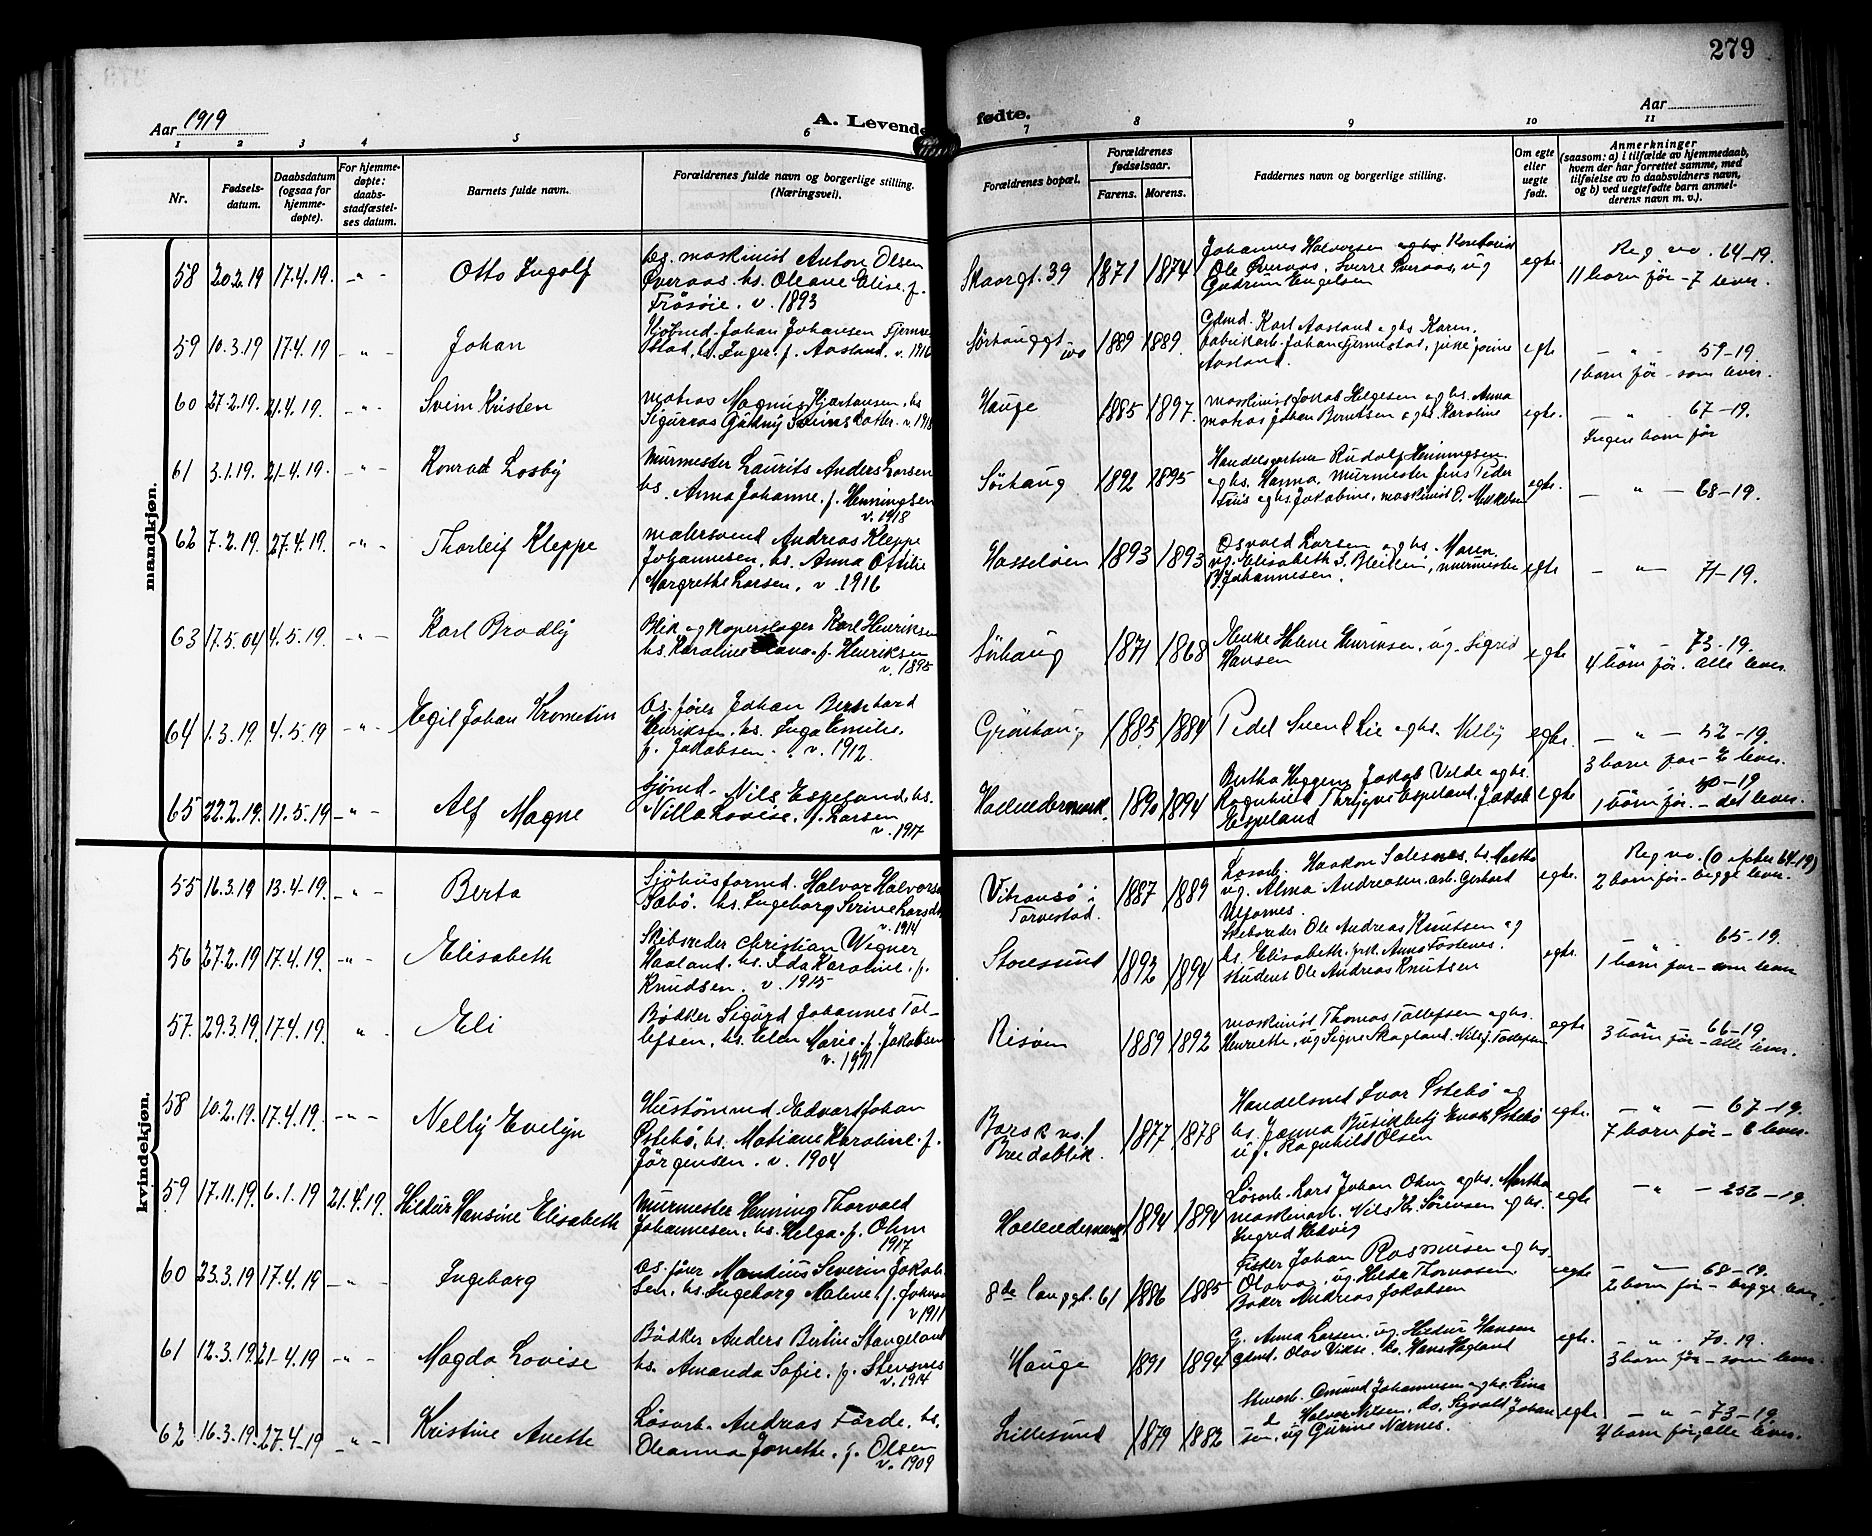 279
Aar 1919
A. Levende
fødte.
Aar
1 2 3 4 5 6 7 8 9 10 11
Nr.
Fødsels-
datum.
Daabsdatum
(ogsaa for
hjemme-
døpte).
For hjemme-
døpte:
daabs-
stadfæstel-
ses datum.
Barnets fulde navn.
Forældrenes fulde navn og borgerlige stilling.
(Næringsvei).
Forældrenes bopæl.
Forældrenes
fødselsaar.
Farens. Morens.
Faddernes navn og borgerlige stilling.
Om egte
eller
uegte
født.
Anmerkninger
(saasom: a) i tilfælde av hjemmedaab,
hvem der har forrettet samme, med
tilføielse av to daabsvidners navn,
og b) ved uegtefødte barn anmel-
derens navn m. v.).
mandkjøn.
58 20.2.19 17.4.19. -"- Otto Ingolf
bs. maskinist Anton Olsen
Øveraas. hs. Oleane Elise. f.
Frösöie. v. 1893
Skaaregt. 39 1871 1874
Johannes Halvorsen
Ole Øveraas, Sverre Øveraas, ug
Gudrun Engelsen
egte.
Reg no. 64-19.
11 barn før - 7 lever.
59 10.3.19 17.4.19 -"- Johan
Johan Johansen
hs. Inger. f. Aasland. v. 1916
1889 1889.
Gdmd. Karl Aasland og hs Karen,
Aasland.
egte
- " - 59-19.
1 barn før - som lever.
60 27.2.19. 21.4.19. -"- Svein Kristen
matros Magnus Kjartansen, hs
v. 1918
Hauge 1885 1897.
maskinist Jakob Helgesen og hs. Anna
matros Johan Berntsen og hs. Karoline
egte.
- " - 67-19.
Ingen barn før
61 3.1.19. 21-4.19. -"- Konrad Losby
Murmester Laurits Anders Larsen
hs. Anna Johanne. f. Henningsen
v. 1918
Sørhaug 1892 1895
Rudolf Henningsen
og hs. Hanna, Murmester Jens Peder
Friis og hs. Jakobine, maskinist O. Mikkelsen
egte.
- " - 68-19.
62 7.2.19. 27.4.19. -"- Thorleif Kleppe
malersvend Andreas Kleppe
Johannesen, hs. Anna Ottilie
Margrethe Larsen, v. 1916
Hasseløen 1893 1893
Osvald Larsen og hs. Maren,
ug. Elisabeth S. murmester
Johannesen.
egte
- " - 71-19.
63 17.5.04 4.5.19. -"- Karl Brodly
Blik og Koperslager Karl Henriksen
hs. Karoline f. Henriksen
v. 1895
Sørhaug 1871 1868
Enke Helene Henriksen, ug. Sigrid
Hansen
egte
- " - 73-19.
4 barn før. alle lever.
64 1.3.19 4.5.19 -"- Egil Johan
bs. fører Johan Bernhard
Henriksen, hs. Inga Emilie.
f. Jakobsen. v. 1912.
Grønhaug 1885 1884
Pedel Svend Lie og hs. Villy
egte.
- " - 52-19.
3 barn før - 2 lever.
65 22.2.19. 11.5.19 -"- Alf Magne
Sjømd. Nils Espeland, hs.
Nilla Lovise, f. Larsen
v. 1917
1890 1894
Bertha Jakob Velde og hs.
Ragnhild Espeland, Jakob
Espeland
egte
10-19
1 barn før. - det lever.
kvindekjøn.
55 16.3.19 13.4-19. -"- Berta
Sjøhusformd. Halvor Halvorsen
Sæbø. hs. Ingeborg Serine Larsdt.
v. 1914
Vibransø i
Torvestad. 1887 1889
Løsarb. Haakon hs. Martha
ug. Alma Andreasen. arb. Gerhard
egte.
Reg no. (0 efter 64-19)
2 barn før - begge lever.
56 27.2.19 17.4.19. -"- Elisabeth
Skibsreder Christian Wegner
Haaland. hs. Ida Karoline. f.
Knudsen. v. 1915
Storesund 1892 1894
Skibsreder Ole Andreas Knutsen og
hs. Elisabeth. frk. Anna
student Ole Andreas Knutsen
egte.
- " - 65-19.
1 barn før - som lever
57. 29.3.19 17.4.19. " - Eli
Bødker Sigurd Johannes Tol-
lefsen, hs. Elen Marie. f. Jakobsen
v. 1911
Risøen 1889 1892
maskinist Thomas Tollefsen og hs.
Henriette, ug Signe Skogland. Nils J. Tollefsen
egte
66-19.
3 barn før - alle lever.
58 10.2.19. 17.4.19. -"- Nelly Evelyn
Hustømmd. Edvard Johan
Østebø, hs. Matiane Karoline. f.
Jørgensen. v. 1904
Breidablik. 1877 1878
Handelsmd Ivar Østebø og
hs. Janna Østebø
ug. Ragnhild Olsen
egte.
- " - 67-19.
7 barn før - 6 lever.
59 17.11.19. 6.1.19 21.4.19. Hildur Hansine Elisabeth
Murmester Henning Thorvald
Johannesen, hs. Helga. f. Ohm
1917
1894 1894
Løsarb. Lars Johan Ohm og hs. Martha
maskinarb. Nils Kr. Sørensen og hs.
Ingrid Hedvig
egte
- " - 252-19.
60 23.3.19 17.4.19 -"- Ingeborg
bs. fører Mandius Severin Jakob-
sen, hs. Ingeborg Malene. f.
v 1911
8de langgt. 61 1886 1885
Fisker Johan Rasmussen og hs.
Olava, ug. Hilda Thomasen
Baker Andreas Jakobsen
egte
- " - 68-19.
2 barn før - begge lever.
61 12.3.19. 21-4.19 -"- Magda Lovise
Bødker Anders Bertin Stangeland
hs. Amanda Sofie. f. Stensnes
v. 1914
Hauge 1891 1894
G. Anna Larsen. ug. Hildur Hansen
gdmd. Olav Vikse. do. Hans Hagland
egte.
- " - 70.19.
3 barn før - som lever.
62 16.3.19. 27.4.19 -"- Kristine Anette
Løsarb. Andreas Førde. hs.
Oleanna Jonette. f. Olsen
v. 1909
Lillesund 1879 1882
Omund Johannesen og hs. Lina
Halvor Nilsen, do. Sigvald Johan
sen, ug Gurine Nærnes.
egte
- " - 73-19
4 barn før, alle lever.